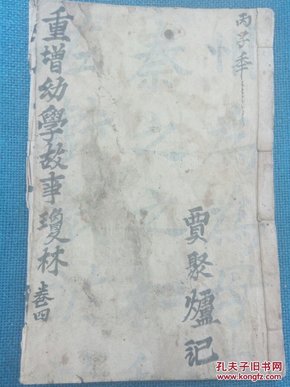 丙子年
賈聚爐记
重增幼學故事瓊林
卷四
孔夫子旧书网